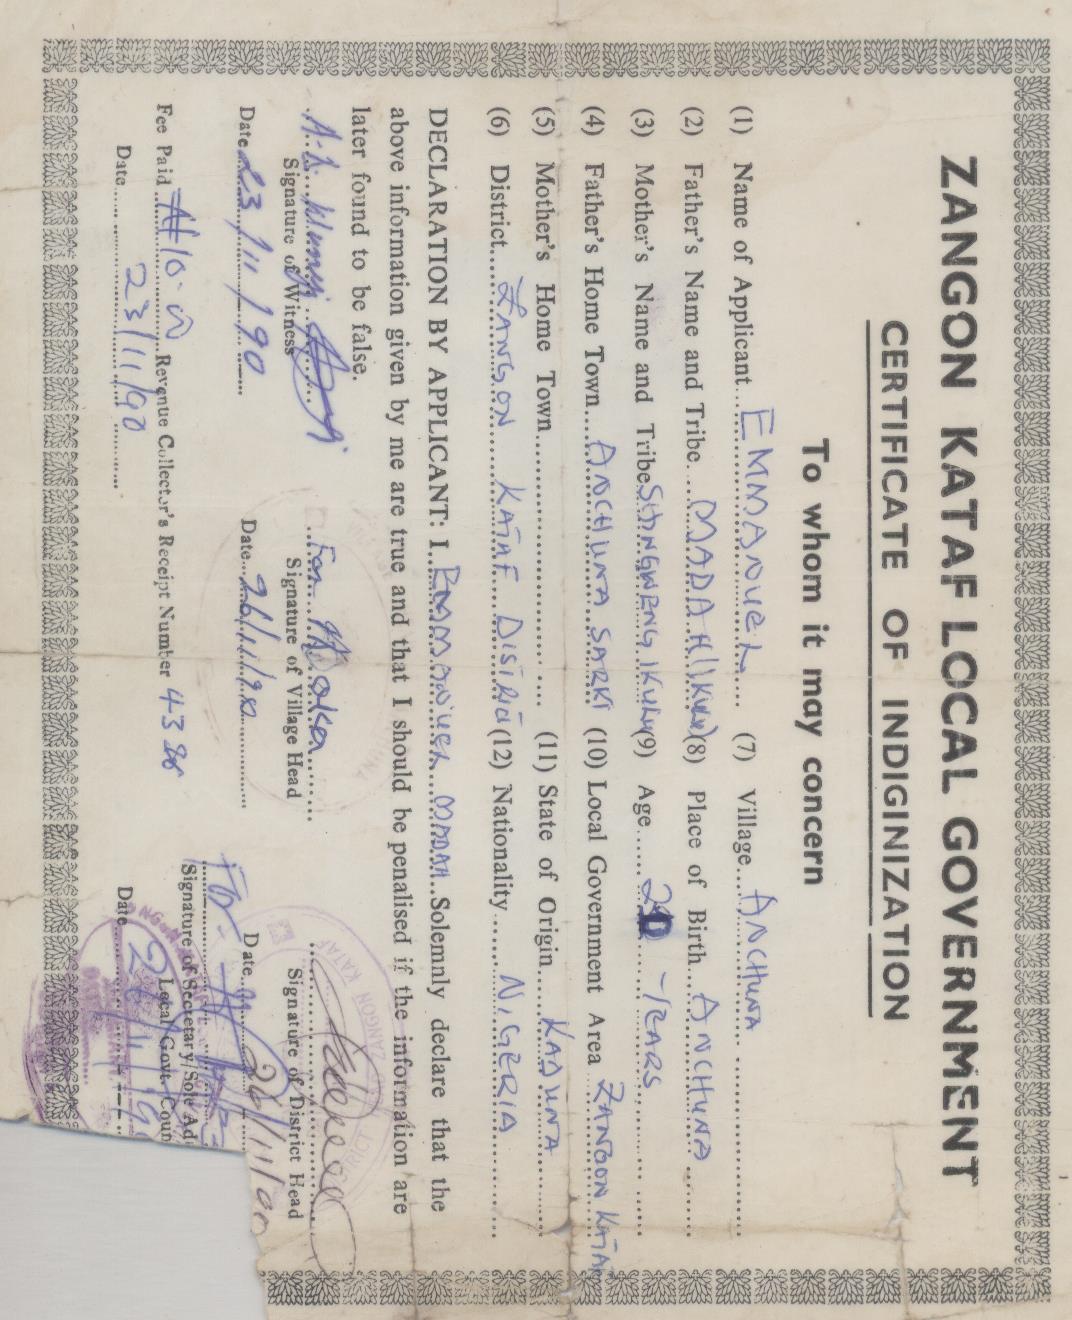 ZANGON KATAF LOCAL GOVERNMENT
CERTIFICATE OF INDIGINIZATION
To whom it may concern
(1) Name of Applicant EMMANUEL
(2) Father's Name and Tribe MADAH
(3) Mother's Name and Tribe
(4) Father's Home Town ANCHUNA SARKI
(5) Mother's Home Town
(6) District ZANGON KATAF DISTRICT
(7) Village ANCHUNA
(8) Place of Birth ANCHUNA
(9) Age YEARS
(10) Local Government Area ZANGON KATAF
(11) State of Origin KADUNA
(12) Nationality NIGERIA
DECLARATION BY APPLICANT: I EMMANUEL MADAH Solemnly declare that the
above information given by me are true and that I should be penalised if the information are
later found to be false.
Signature of Witness
Date 23/11/90
For
Signature of Village Head
Date 26/11/90
Signature of District Head
Date 26/11/90
Fee Paid ₦10.00 Revenue Collector's Receipt Number
Date 23/11/90
For
Signature of Secretary/Sole Ad
Local Govt. Coun
Date 26/11/9